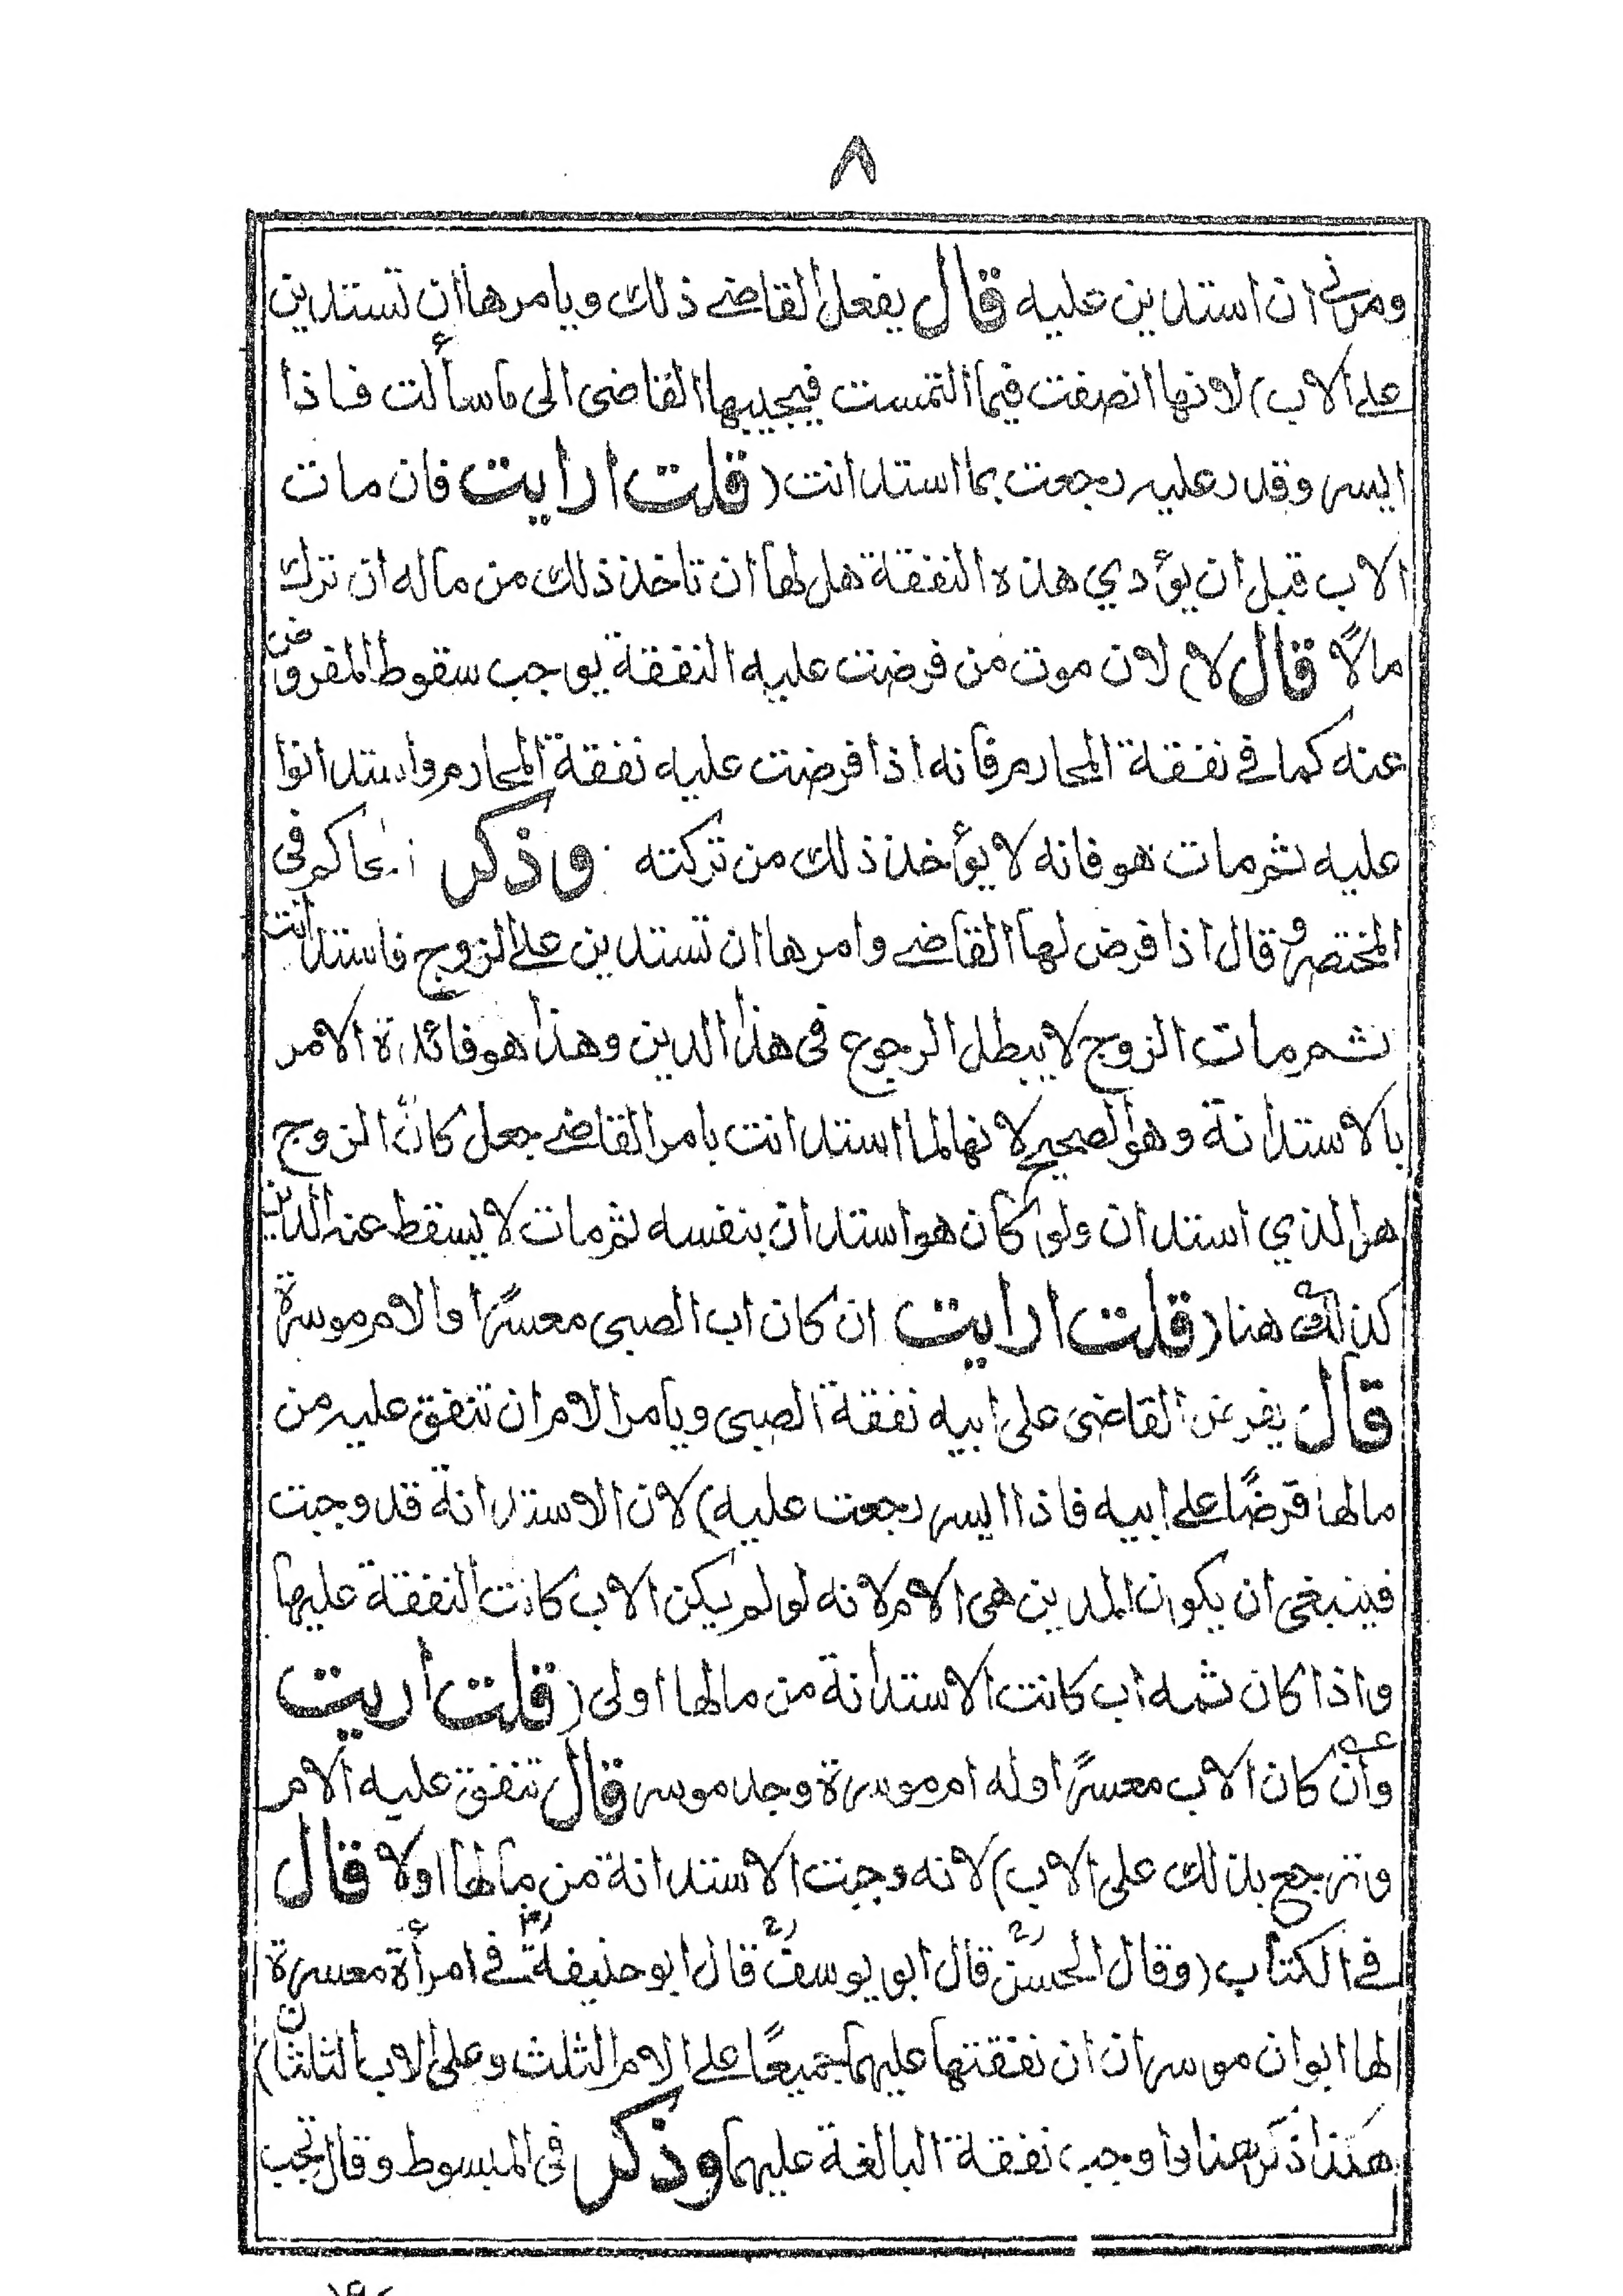 ٨
ومرني ان استدين عليه قال يفعل القاضے ذلك ويامرها ان تستدين
علے الاب) لانها انصفت فيما التمست فيجيبها القاضى الى ما سألت فاذا
ايسر وقدر عليه رجعت بما استدانت (قلت ارايت فان مات
الاب قبل ان يؤدي هذه النفقة هل لها ان تاخذ ذلك من ماله ان ترك
مالًا قال لا) لان موت من فرضت عليه النفقة يوجب سقوط المفروض
عنه كما في نفقة المحارم فانه اذا فرضت عليه نفقة المحارم واستدانوا
عليه ثم مات هو فانه لا يؤخذ ذلك من تركته وذكر الحاكم فى
المختصر وقال اذا فرض لها القاضے وامرها ان تستدين علے الزوج فاستدانت
ثم مات الزوج لا يبطل الرجوع فى هذا الدين وهذا هو فائدة الامر
بالاستدانة وهو الصحيح لانها لما استدانت بامر القاضے جعل كانّ الزوج
هو الذي استدان ولو كان هو استدان بنفسه ثم مات لا يسقط عنه الدين
كذلك هنا (قلت ارايت ان كان اب الصبى معسرًا والام موسرة
قال يفرض القاضى على ابيه نفقة الصبى ويامر الام ان تنفق عليه من
مالها قرضًا علے ابيه فاذا ايسر رجعت عليه) لان الاستدانة قد وجبت
فينبغى ان يكون المدين هى الام لانه لو لم يكن الاب كانت النفقة عليها
واذا كان ثمه اب كانت الاستدانة من مالها اولى (قلت اريت
وأن كان الاب معسرًا وله ام موسرة وجد موسر قال تنفق عليه الام
وترجع بذلك على الاب) لانه وجبت الاستدانة من مالها اولا قال
فے الكتاب (وقال الحسنؒ قال ابو يوسفؒ قال ابو حنيفةؒ فے امرأة معسرة
لها ابوان موسران ان نفقتها عليهما جميعًا علے الام الثلث وعلى الاب الثلثان)
هكذا ذكر هنا واوجب نفقة البالغة عليهما وذكر فى المبسوط وقال تجب